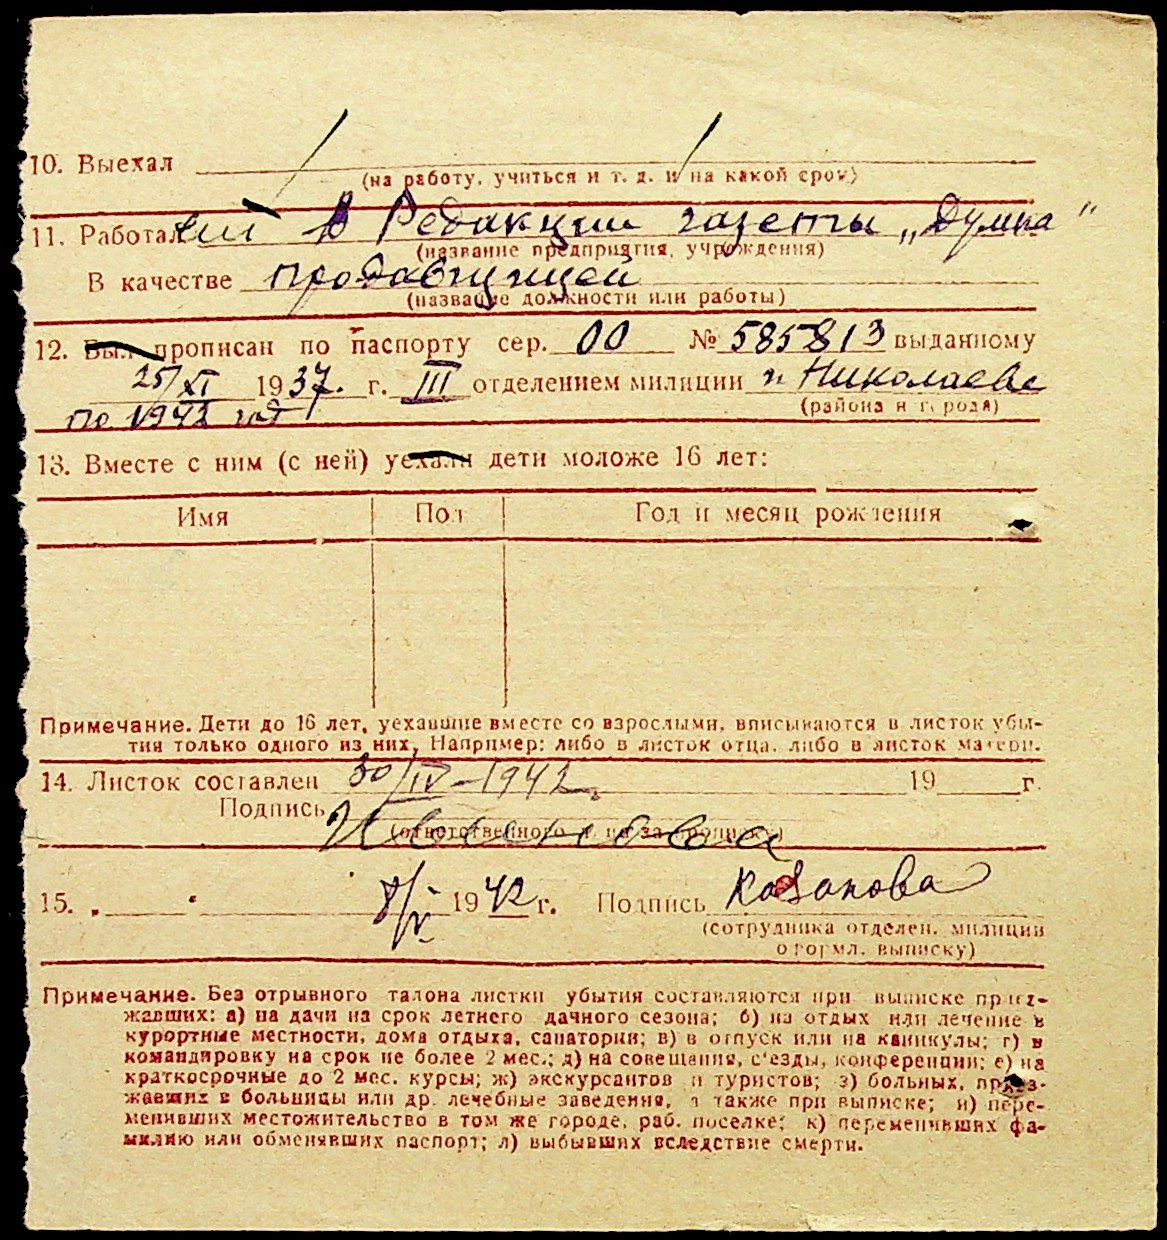 10. Выехал
(на работу, учиться и т. д. и на какой срок)
11. Работает в Редакции газеты „Думка"
(название предприятия, учреждения)
В качестве продавщицей
(название должности или работы)
12. Был прописан по паспорту сер. 00 № 585813 выданному
25/XI 1937. г. III отделением милиции г. Николаеве
(района и города)
по 1942 год
13. Вместе с ним (с ней) уехали дети моложе 16 лет:
Имя Пол Год и месяц рождения
Примечание. Дети до 16 лет, уехавшие вместе со взрослыми, вписываются в листок убы-
тия только одного из них. Например: либо в листок отца, либо в листок матери.
14. Листок составлен 30/IV-1942. 19 г.
Подпись
(ответственного за прописку)
15. „ " 8/V 1942 г. Подпись Казанова
(сотрудника отделен. милиции
оформл. выписку)
Примечание. Без отрывного талона листки убытия составляются при выписке приез-
жавших: а) на дачи на срок летнего дачного сезона; б) на отдых или лечение в
курортные местности, дома отдыха, санатории; в) в отпуск или на каникулы; г) в
командировку на срок не более 2 мес.; д) на совещания, с'езды, конференции; е) на
краткосрочные до 2 мес. курсы; ж) экскурсантов и туристов; з) больных, приез-
жавших в больницы или др. лечебные заведения, а также при выписке; и) пере-
менивших местожительство в том же городе, раб. поселке; к) переменивших фа-
милию или обменявших паспорт; л) выбывших вследствие смерти.